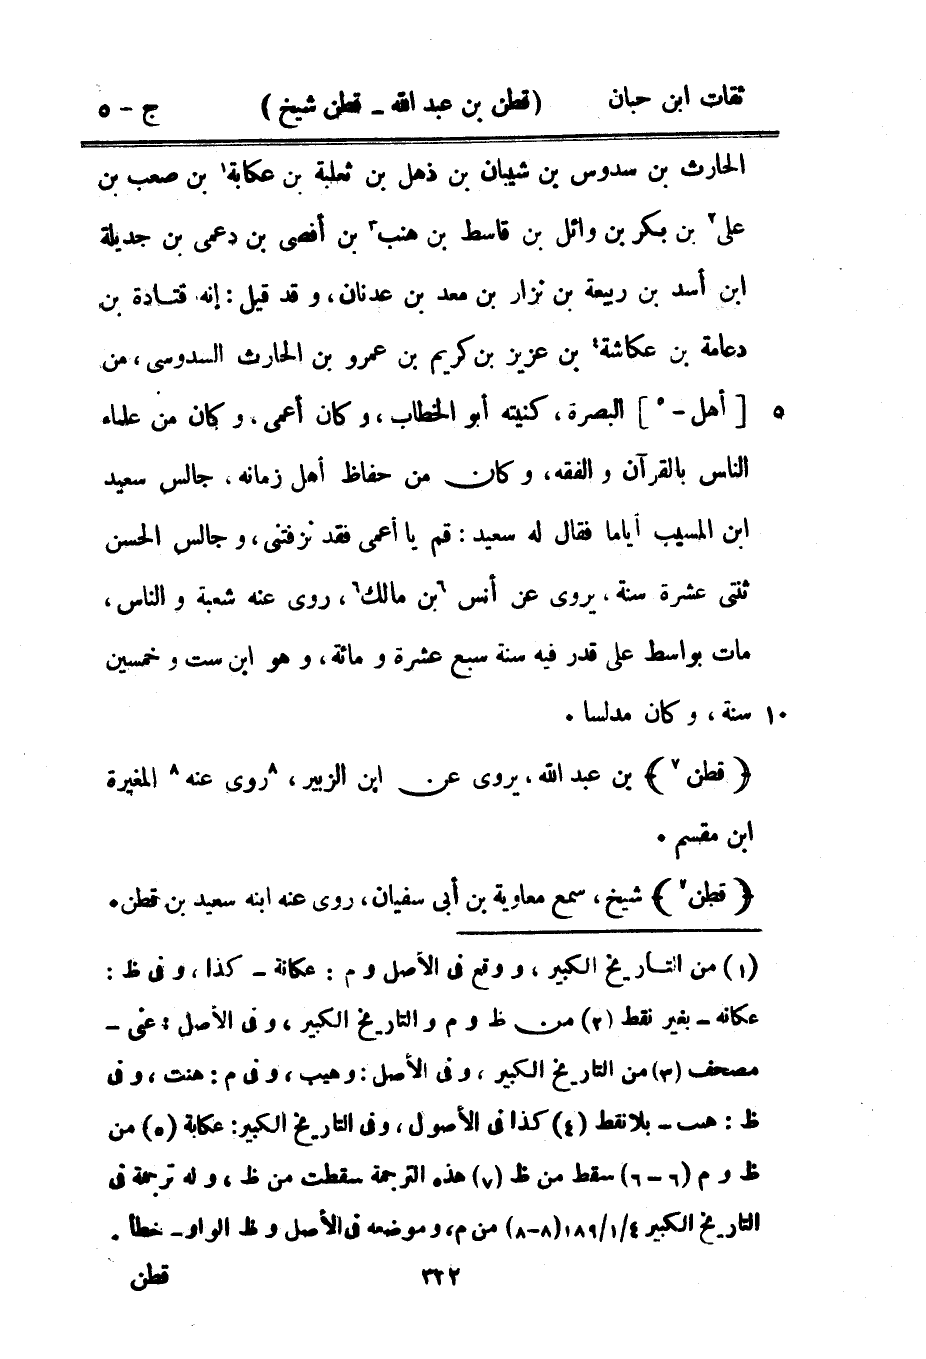 ثقات ابن حبان (قطن بن عبد الله ـ قطن شيخ) ج - ٥
الحارث بن سدوس بن شيبان بن ذهل بن ثعلبة بن عكابة١ بن صعب بن
على٢ بن بكر بن وائل بن قاسط بن هنب٣ بن أفصى بن دعمى بن جديلة
ابن أسد بن ربيعة بن نزار بن معد بن عدنان، و قد قيل: إنه قتادة بن
دعامة بن عكاشة٤ بن عزيز بن كريم بن عمرو بن الحارث السدوسى، من
٥ [أهل - ٥] البصرة، كنيته أبو الخطاب، و كان أعمى، و كان من علماء
الناس بالقرآن و الفقه، و كان من حفاظ أهل زمانه، جالس سعيد
ابن المسيب أياما فقال له سعيد: قم يا أعمى فقد نزفتنى، و جالس الحسن
ثنتى عشرة سنة، يروى عن أنس ٦بن مالك٦، روى عنه شعبة و الناس،
مات بواسط على قدر فيه سنة سبع عشرة و مائة، و هو ابن ست و خمسين
١٠ سنة، و كان مدلسا.
﴿قطن٧﴾ بن عبد الله، يروى عن ابن الزبير، ٨روى عنه٨ المغيرة
ابن مقسم.
﴿قطن٧﴾ شيخ، سمع معاوية بن أبى سفيان، روى عنه ابنه سعيد بن قطن.
(١) من التاريخ الكبير، و وقع فى الأصل و م: عكانة - كذا، و فى ظ:
عكانه - بغير نقط (٢) من ظ و م و التاريخ الكبير، و فى الأصل: عنى -
مصحف (٣) من التاريخ الكبير، و فى الأصل: وهيب، و فى م: هنت، و فى
ظ: هىٮ - بلا نقط (٤) كذا فى الأصول، و فى التاريخ الكبير: عكابة (٥) من
ظ و م (٦ - ٦) سقط من ظ (٧) هذه الترجمة سقطت من ظ، و له ترجمة فى
التاريخ الكبير ٤/ ١/ ١٨٩ (٨-٨) من م، و موضعه فى الأصل و ظ الواو - خطأ.
٣٢٢ قطن